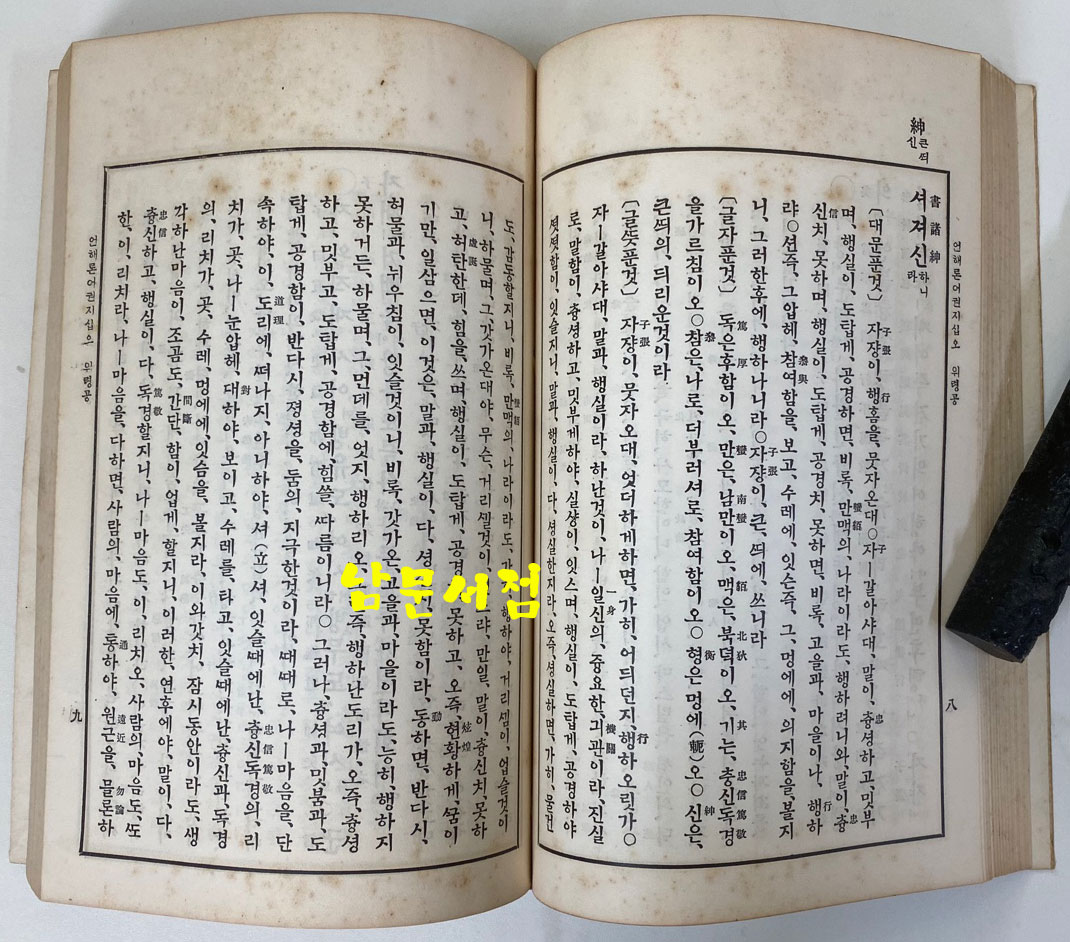 언해론어권지십오 위령공
八
紳 큰띄 신
書諸紳
셔져신하니라
子張 行 子 忠
〔대문푼것〕 자쟝이, 행홈을, 뭇자온대○자ㅡ갈아샤대, 말이, 츙셩하고, 밋부
蠻貊 忠
며, 행실이, 도탑게, 공경하면, 비록, 만맥의, 나라이라도, 행하려니와, 말이, 츙
信 行
신치, 못하며, 행실이, 도탑게, 공경치, 못하면, 비록, 고을과, 마을이나, 행하
參與
랴○션즉, 그압헤, 참여함을, 보고, 수레에, 잇슨즉, 그, 멍에에, 의지함을볼지
子張
니, 그러한후에, 행하나니라○자쟝이, 큰, 띄에, 쓰니라
篤 厚 蠻 南蠻 貊 北狄 其 忠信篤敬
〔글자푼것〕 독은후함이오, 만은, 남만이오, 맥은, 북뎍이오, 기는, 충신독경
參 衡 紳
을가르침이오○참은, 나로, 더부러셔로, 참여함이오○형은멍에(軛)오○신은,
큰띄의, 듸리운것이라
子張 行
〔글뜻푼것〕 자쟝이, 뭇자오대, 엇더하게하면, 가히, 어듸던지, 행하오릿가○
一身 機關
자ㅡ갈아샤대, 말과, 행실이라, 하난것이, 나ㅡ일신의, 즁요한, 긔관이라, 진실
로, 말함이, 츙셩하고, 밋부게하야, 실샹이, 잇스며, 행실이, 도탑게, 공경하야
셧셧함이, 잇슬지니, 말과, 행실이, 다, 셩실한지라, 오즉, 셩실하면, 가히, 물건
蠻貊
도, 감동할지니, 비록, 만맥의, 나라이라도, 행하야, 거리셈이, 업슬것이
니, 하물며, 그갓가온대야, 무슨, 거리셀것이, 랴, 만일, 말이, 츙신치, 못하
虛誕 炫煌
고, 허탄한데, 힘을, 쓰며, 행실이, 도탑게, 공경 못하고, 오즉, 현황하게, 꿈이
動
기만, 일삼으면, 이것은, 말과, 행실이, 다, 셩 못함이라, 동하면, 반다시,
허물과, 뉘우침이, 잇슬것이니, 비록, 갓가온, 고을과, 마을이라도, 능히, 행하지
못하거든, 하물며, 그, 먼데를, 엇지, 행하리오 즉, 행하난도리가, 오즉, 츙셩
하고, 밋부고, 도탑게, 공경함에힘쓸, 따름이니라○ 그러나, 츙셩과, 밋붐과, 도
탑게, 공경함이, 반다시, 졍셩을, 둠의, 지극한것이라, 때때로, 나ㅡ마음을, 단
道理 忠信篤敬
속하야, 이, 도리에, 떠나지, 아니하야, 셔(立)셔, 잇슬때에난, 츙신독경의, 리
對
치가, 곳, 나ㅡ눈압헤, 대하야, 보이고, 수레를, 타고, 잇슬때에난, 츙신과, 독경
의, 리치가, 곳, 수레, 멍에에, 잇슴을, 볼지라, 이와갓치, 잠시동안이라도, 생
間斷
각하난마음이, 조곰도, 간단, 함이, 업게, 할지니, 이러한, 연후에야, 말이, 다,
忠信 篤敬
츙신하고, 행실이, 다, 독경할지니, 나ㅡ마음도, 이, 리치오, 사람의, 마음도, 또
通 遠近 勿論
한, 이, 리치라, 나ㅡ마음을, 다하면, 사람의, 마음에, 통하야, 원근을, 물론하
언해론어권지십오 위령공
九
남문서점